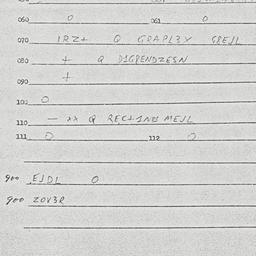 060 0 061 0
070 1RZ+ Q GRAPL3Y GREJL
080 + Q D1GPENDZESN
090 +
100 0
110 — ** Q RECT1NG MEJL
111 0 112 0
900 EJDL 0
900 ZOV3R